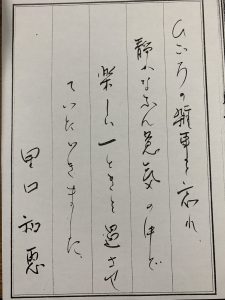 ひごろの雑事を忘れ、
静かなふん囲気の中で
楽しい一ときを過させ
ていただきました。
里口和恵